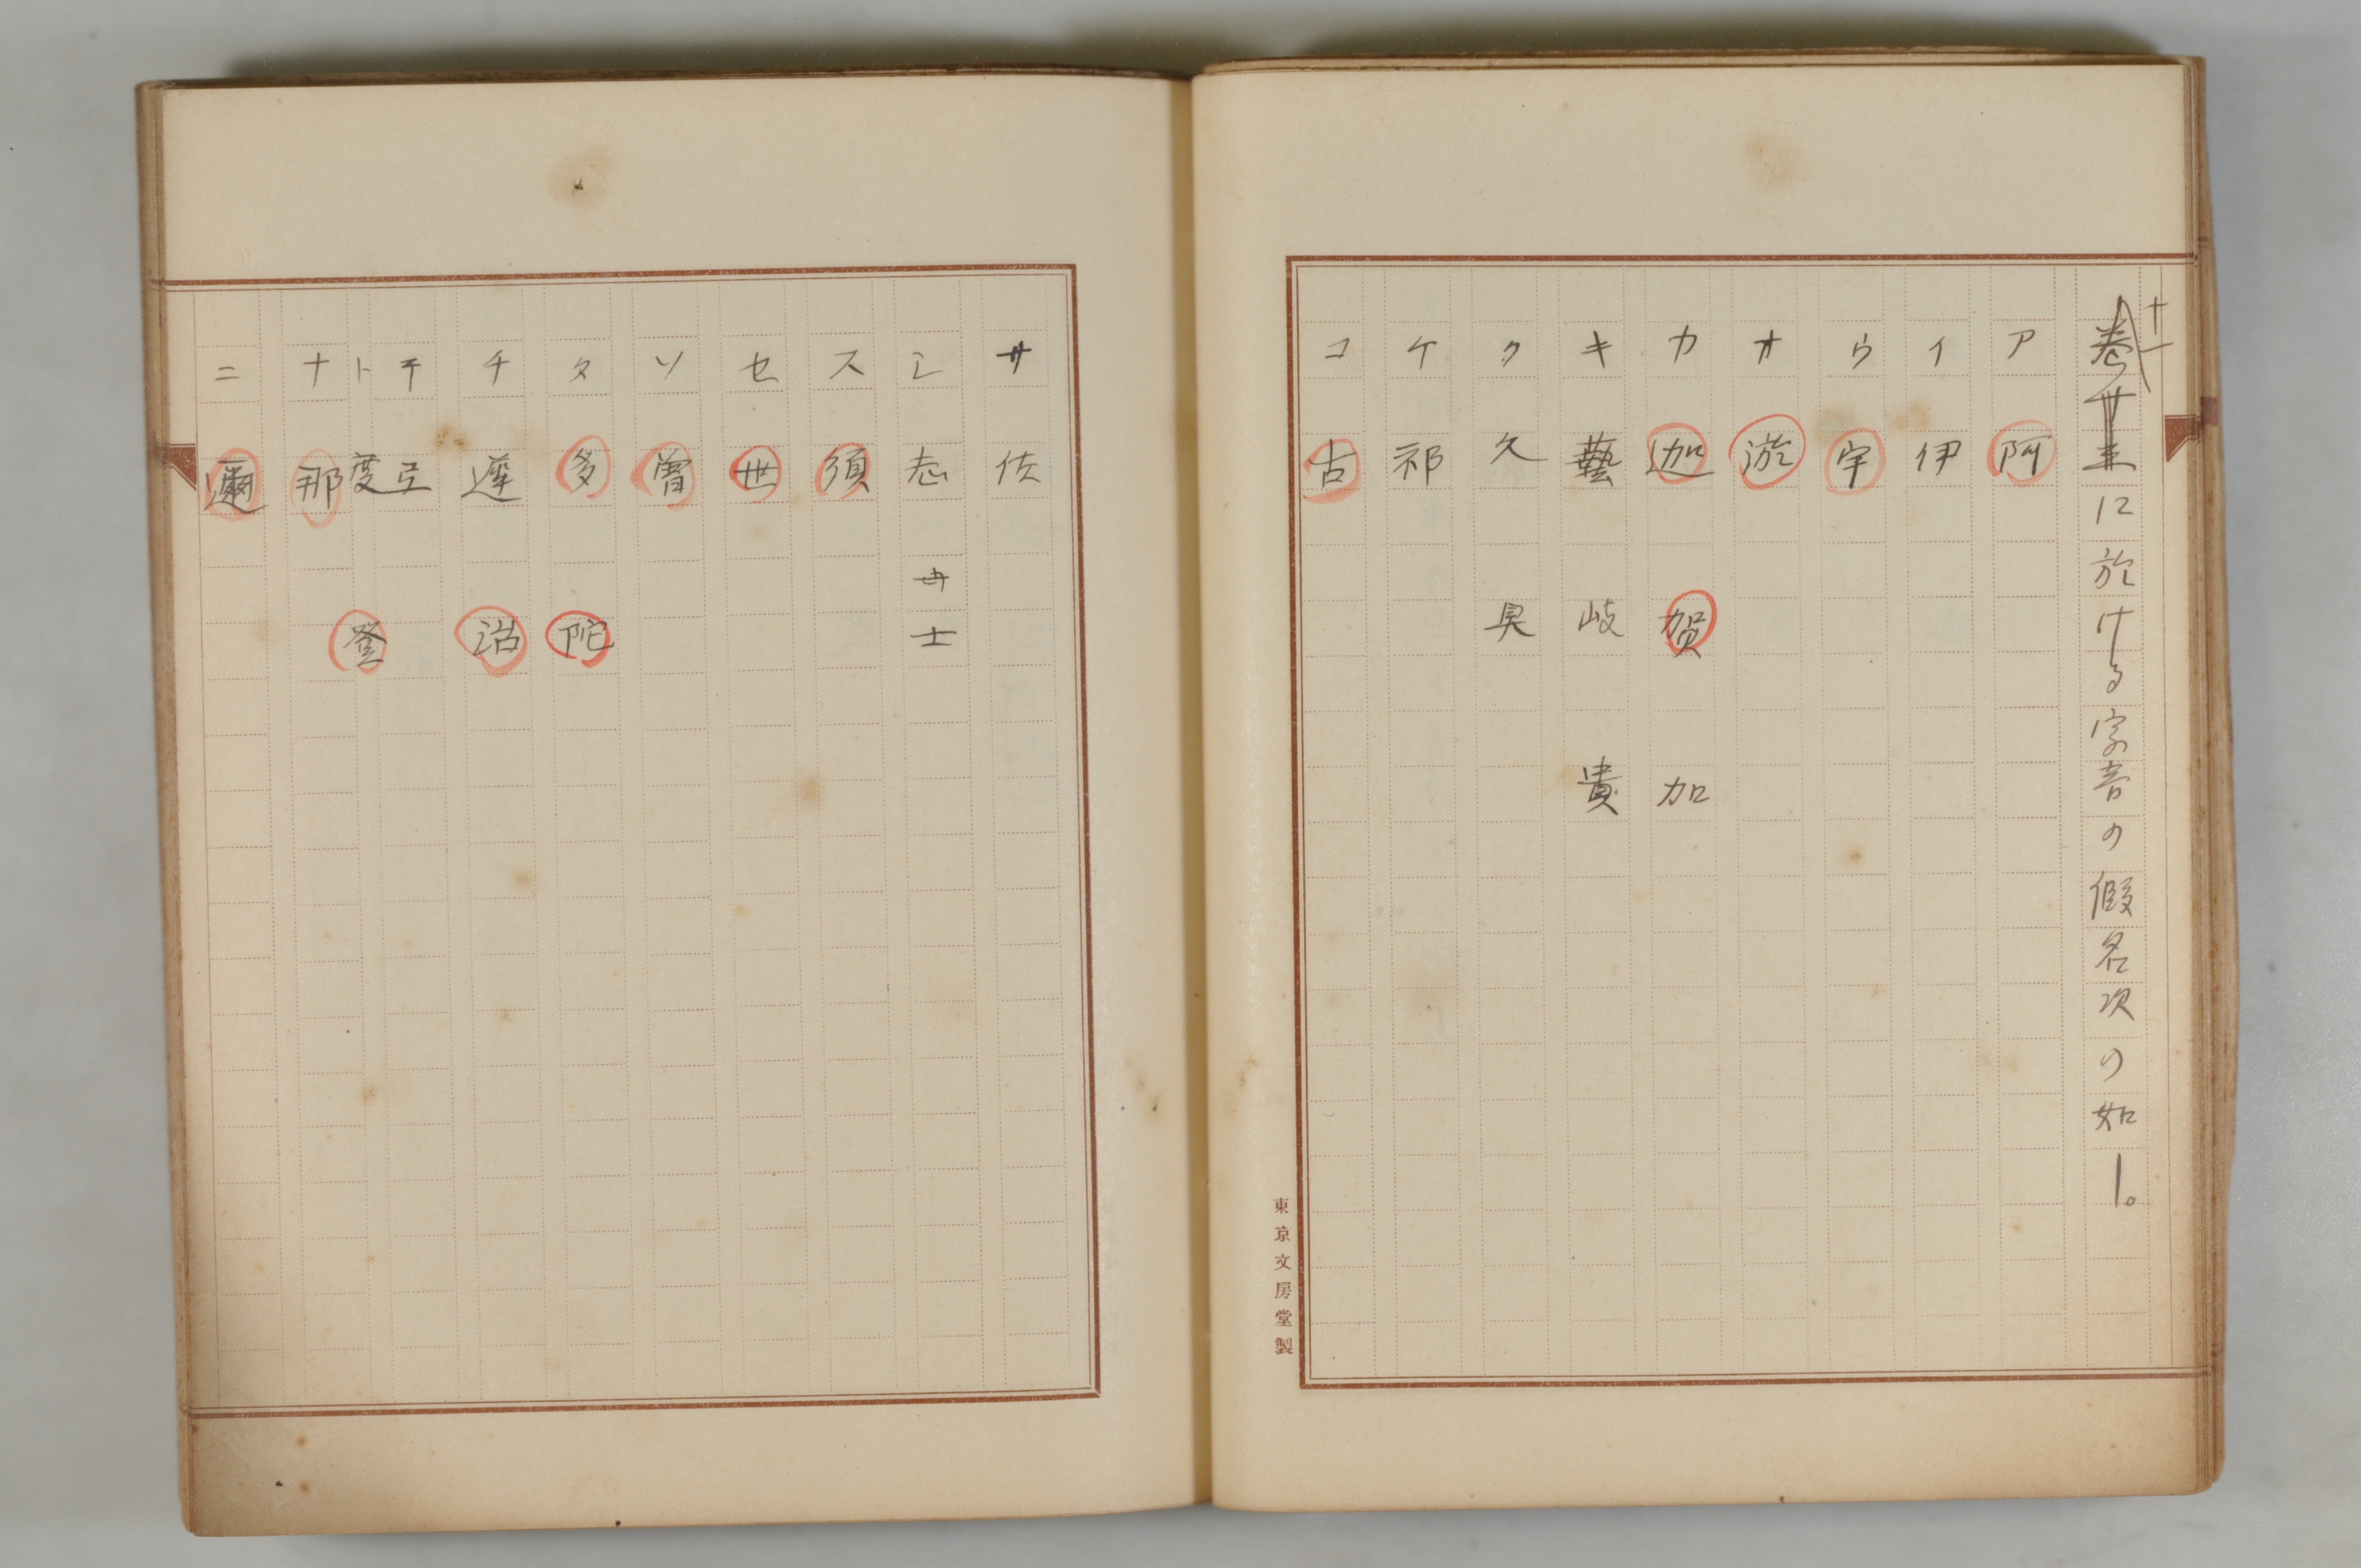 十一
巻廿五に於ける字音の假名次の如し。
ア 阿
イ 伊
ウ 宇
オ 游
カ 迦 賀 加
キ 藝 岐 貴
ク 久 具
ケ 祁
コ 古
東京文房堂製
サ 佐
シ 志 士
ス 須
セ 世
ソ 曽
タ 多 陀
チ 遅 治
テ 弖
ト 度 登
ナ 那
ニ 邇